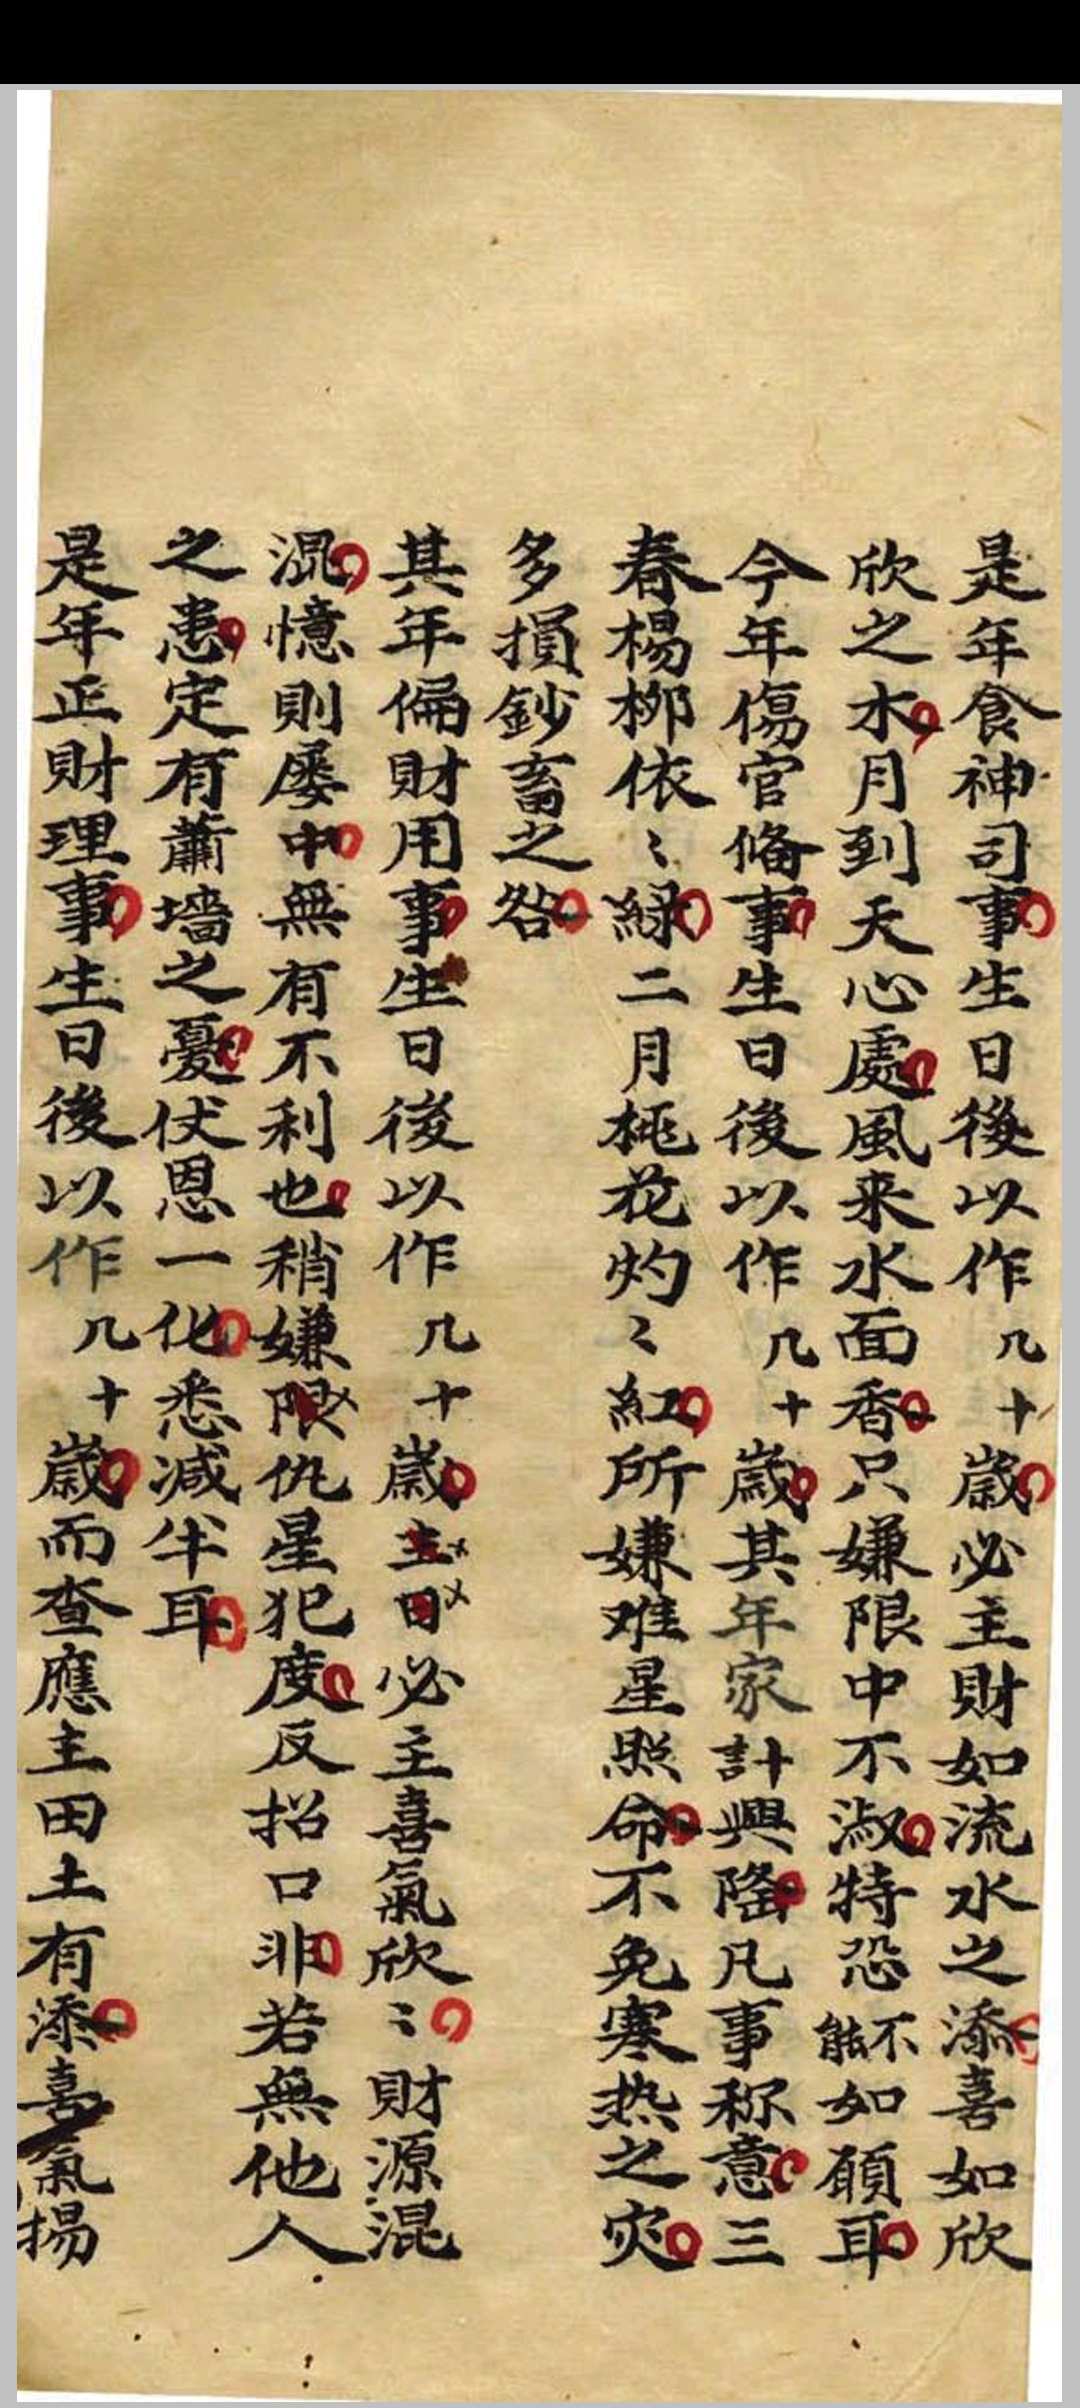 是年食神司事生日後以作几十歲必主財如流水之添喜如欣
欣之木月到天心處風来水面香只嫌限中不淑特恐不能如願耳
今年傷官俻事生日後以作几十歲其年家計興隆凡事称意三
春楊柳依〻綠二月桃花灼〻紅所嫌难星照命不免寒热之灾
多損鈔畜之咎
其年偏財用事生日後以作几十歲主日必主喜氣欣〻財源混
混憶則屡中無有不利也稍嫌限仇星犯度反招口非若無他人
之患定有蕭墻之憂伏恩一化悉减半耳
是年正財理事生日後以作几十歲而查應主田土有添喜氣揚